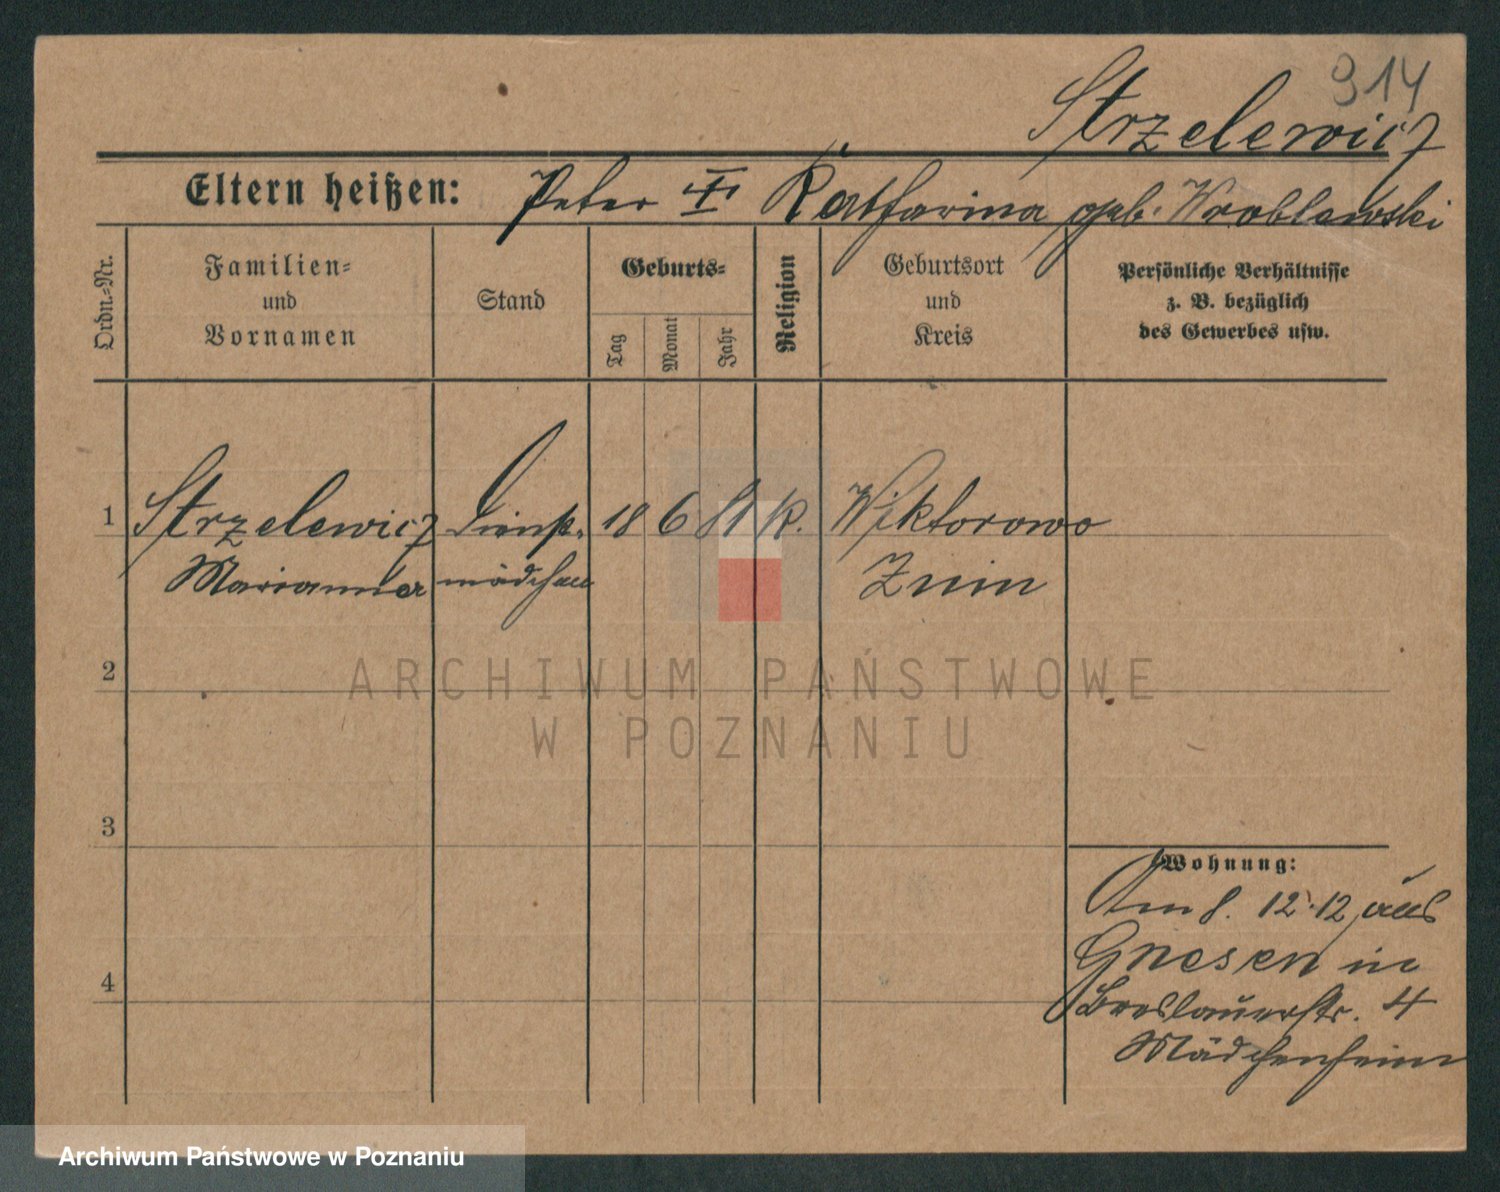 914
Strzelewicz
Eltern heißen: Peter II Katharina geb. Wroblewski
Ordn.-Nr.
Familien-
und
Vornamen
Stand
Geburts-
Tag
Monat
Jahr
Religion
Geburtsort
und
Kreis
Persönliche Verhältnisse
z. B. bezüglich
des Gewerbes usw.
1 Strzelewicz Dienst- 18 6 81 K. Wiktorowo
Marianna mädchen Znin
2
3
4
Wohnung:
Am 8. 12.12 aus
Gnesen in
Breslauerstr. 4
Mädchenheim
ARCHIWUM PAŃSTWOWE
W POZNANIU
Archiwum Państwowe w Poznaniu